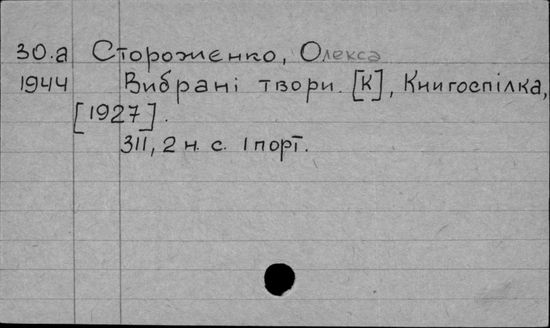 30.а Стороженко, Олекса
1944 Вибрані твори. [К], Книгоспілка,
[1927].
311, 2 н. с. 1 порт.